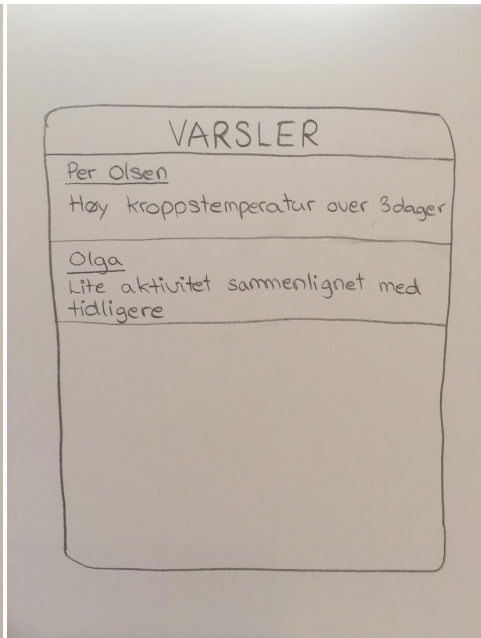 VARSLER
Per Olsen
Høy kroppstemperatur over 3dager
Olga
Lite aktivitet sammenlignet med
tidligere